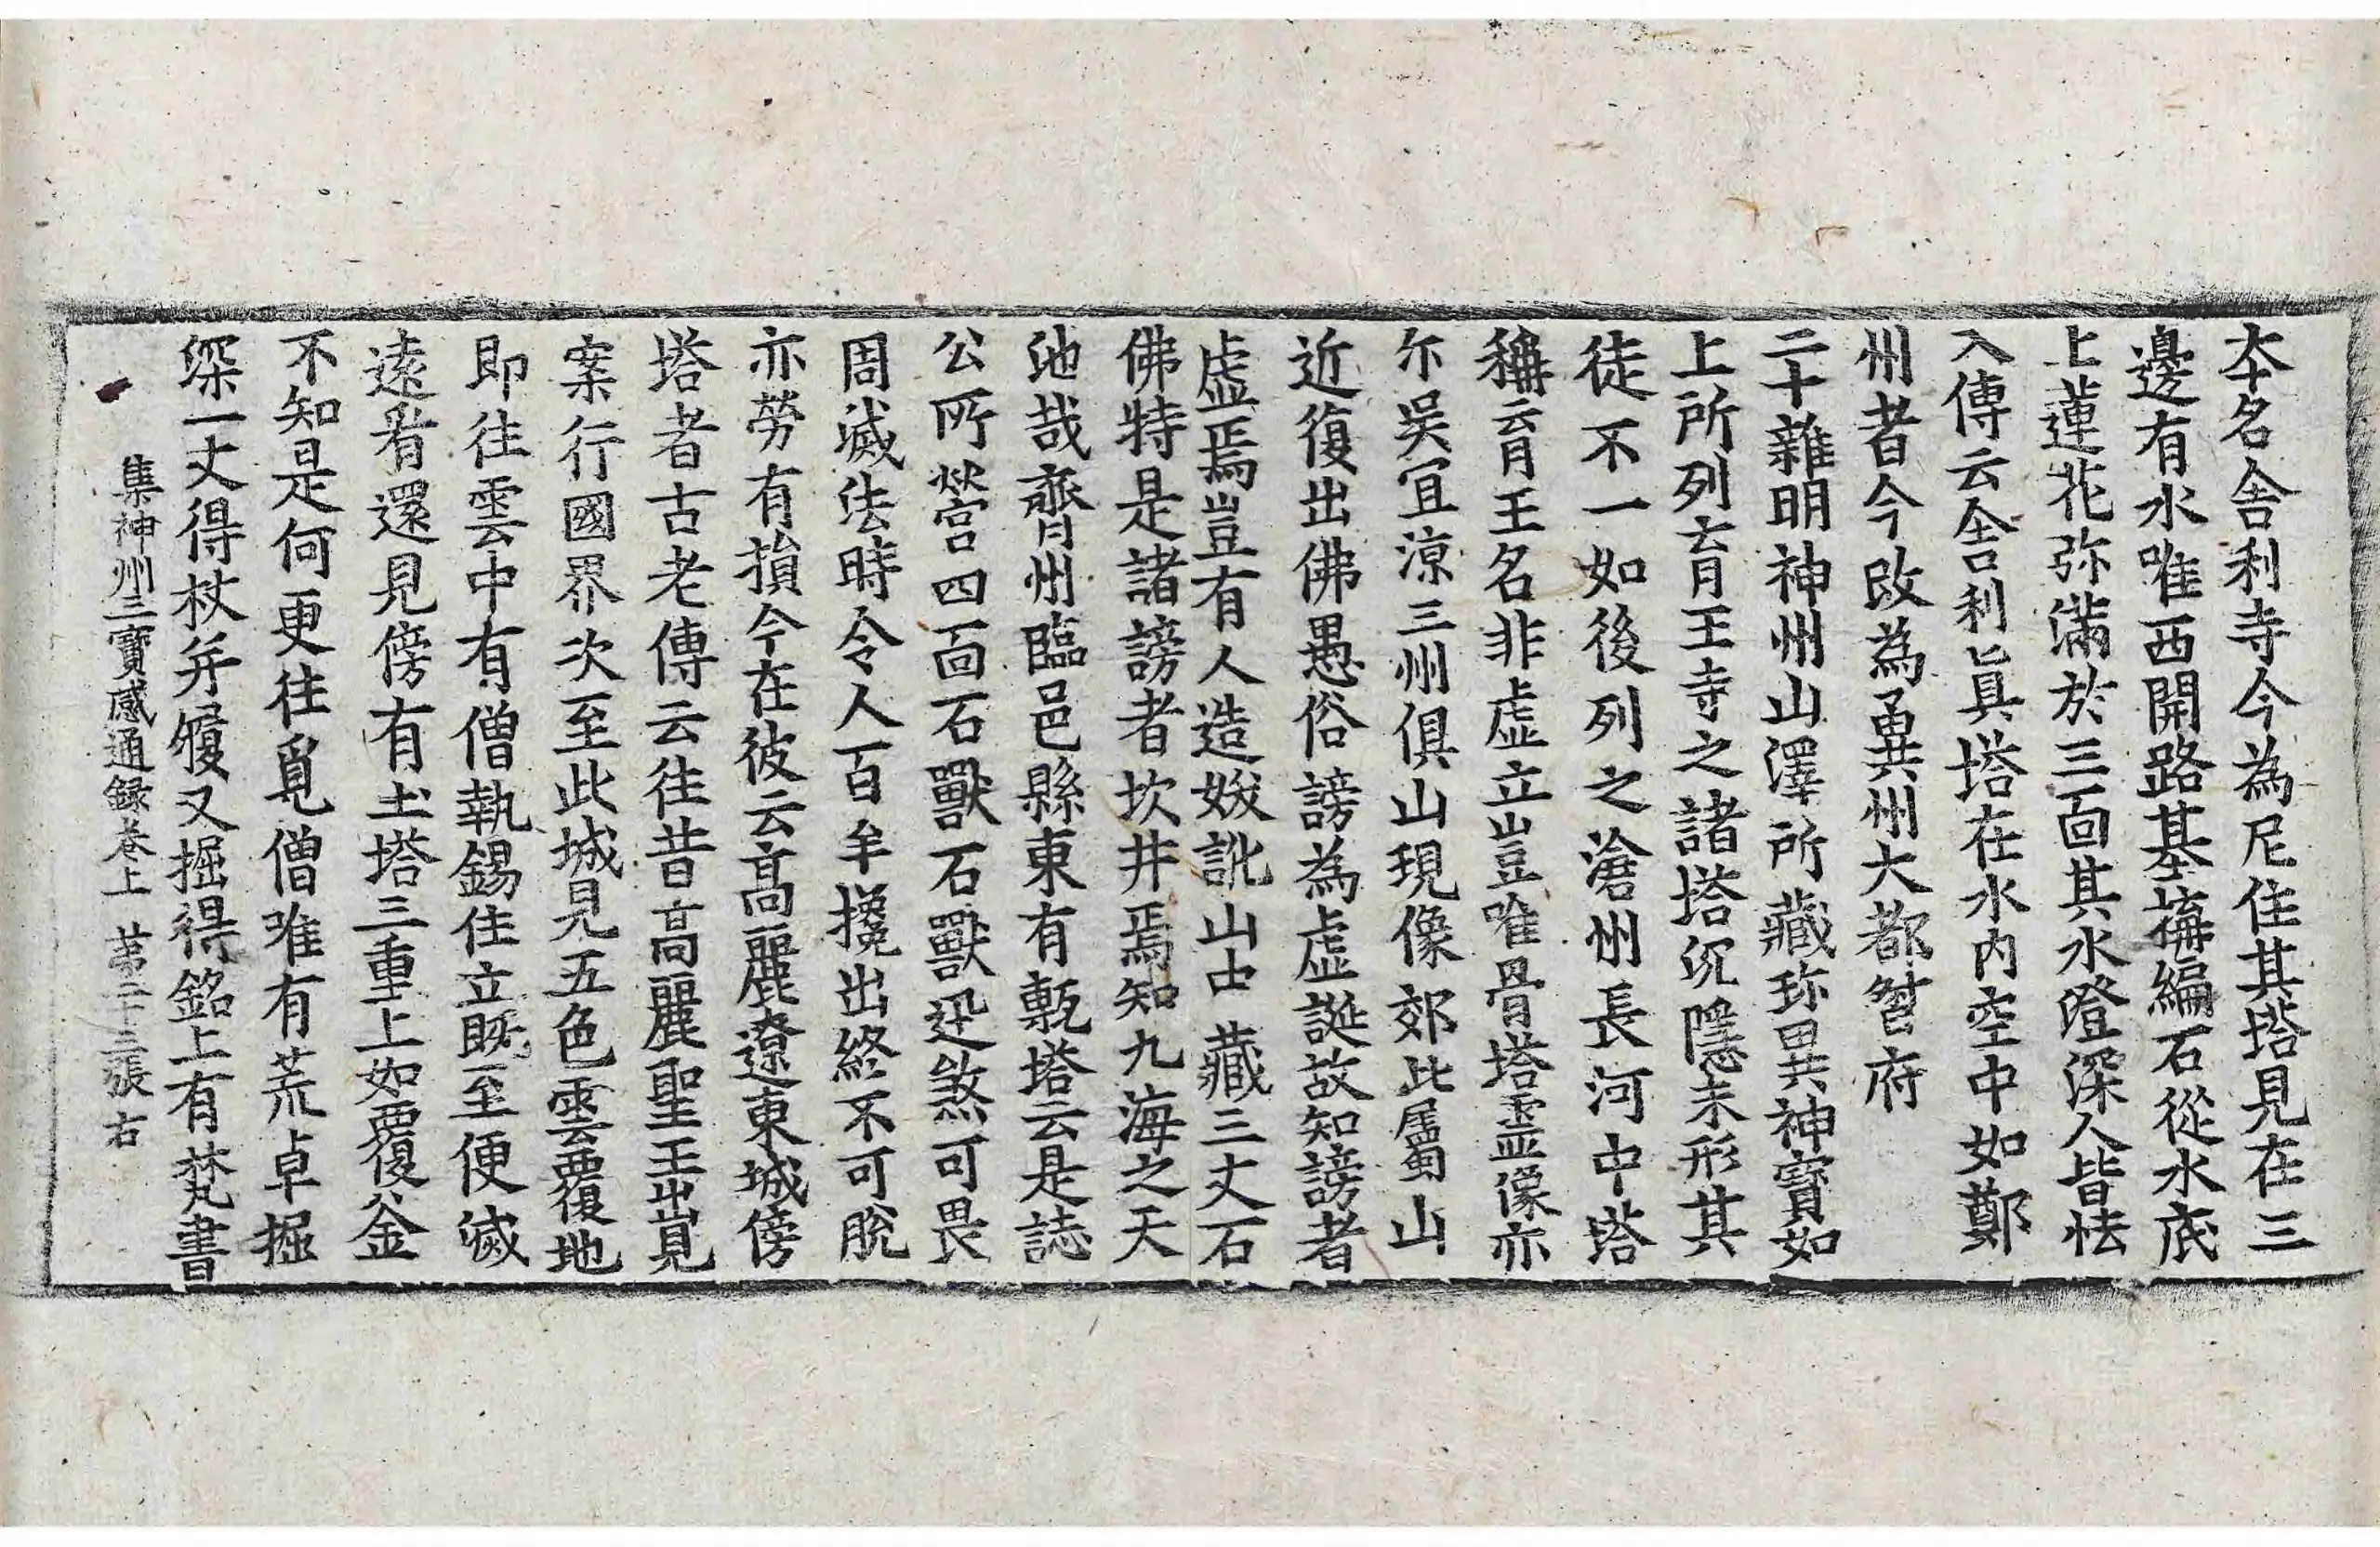 本名舎利寺今為尼住其塔見在三
邊有水唯西開路基搆編石從水底
上蓮花弥滿於三面其水澄深人皆怯
入傳云舎利眞塔在水内空中如鄭
州者今改為兾州大都督府
二十雜明神州山澤所藏珎異神寶如
上所列育王寺之諸塔沉隱未形其
徒不一如後列之滄州長河中塔
稱育王名非虚立豈唯骨塔靈像亦
尓吳冝涼三州俱山現像郊此屬蜀山
近復出佛愚俗謗為虚誕故知謗者
虚焉豈有人造妭訛山古藏三丈石
佛特是諸謗者坎井焉知九海之天
池哉齊州臨邑縣東有甎塔云是誌
公所營四面石獸石獸迅煞可畏
周滅法時令人百牟攙出終不可脫
亦勞有損今在彼云髙麗遼東城傍
塔者古老傳云往昔髙麗聖王出見
案行國界次至此城見五色雲覆地
即往雲中有僧執錫住立旣至便滅
逺看還見傍有土塔三重上如覆釡
不知是何更往覓僧唯有荒草掘
深一丈得杖并履又掘得銘上有梵書
集神州三寶感通録卷上 苐二十三張 右